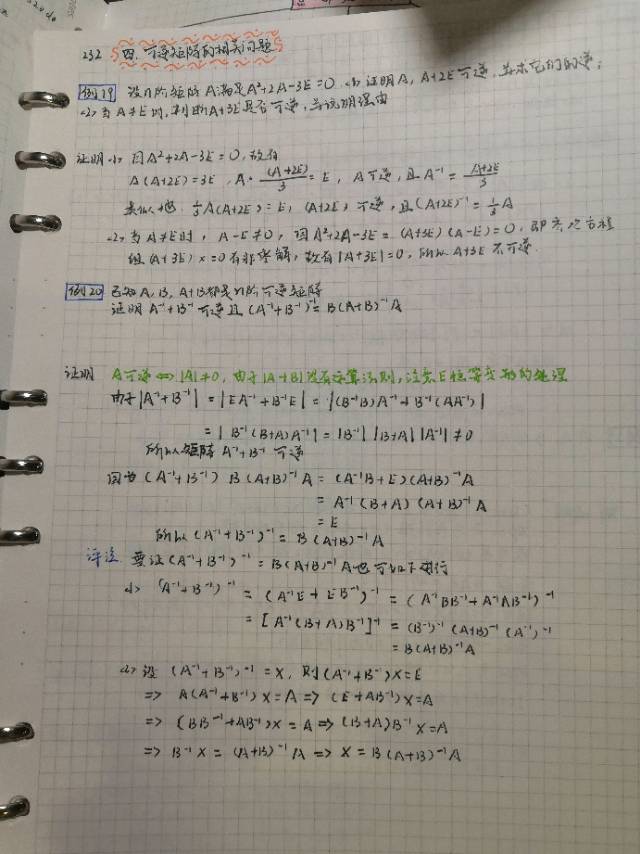 232 四. 可逆矩阵的相关问题
例19 设n阶矩阵A满足A²+2A-3E=0. (1) 证明A, A+2E可逆, 并求它们的逆;
(2) 当A≠E时, 判断A+3E是否可逆, 并说明理由
证明 (1) 因A²+2A-3E=0, 故有
A(A+2E)=3E, A·(A+2E)/3=E, A可逆, 且A⁻¹=(A+2E)/3
类似地 1/3A(A+2E)=E, (A+2E)可逆, 且(A+2E)⁻¹=1/3A
(2) 当A≠E时, A-E≠0, 因A²+2A-3E=(A+3E)(A-E)=0, 即齐次方程
组(A+3E)x=0有非零解, 故有|A+3E|=0, 所以A+3E不可逆.
例20 已知A, B, A+B都是n阶可逆矩阵
证明A⁻¹+B⁻¹可逆且(A⁻¹+B⁻¹)⁻¹=B(A+B)⁻¹A
证明 A可逆⇔|A|≠0, 由于|A+B|没有运算法则, 注意E恒等变形的处理
由于|A⁻¹+B⁻¹|=|EA⁻¹+B⁻¹E|=|(B⁻¹B)A⁻¹+B⁻¹(AA⁻¹)|
=|B⁻¹(B+A)A⁻¹|=|B⁻¹||B+A||A⁻¹|≠0
所以矩阵A⁻¹+B⁻¹可逆
因为(A⁻¹+B⁻¹)B(A+B)⁻¹A=(A⁻¹B+E)(A+B)⁻¹A
=A⁻¹(B+A)(A+B)⁻¹A
=E
所以(A⁻¹+B⁻¹)⁻¹=B(A+B)⁻¹A
评注 要证(A⁻¹+B⁻¹)⁻¹=B(A+B)⁻¹A也可如下进行
(1) (A⁻¹+B⁻¹)⁻¹=(A⁻¹E+EB⁻¹)⁻¹=(A⁻¹BB⁻¹+A⁻¹AB⁻¹)⁻¹
=[A⁻¹(B+A)B⁻¹]⁻¹=(B⁻¹)⁻¹(A+B)⁻¹(A⁻¹)⁻¹
=B(A+B)⁻¹A
(2) 设(A⁻¹+B⁻¹)⁻¹=X, 则(A⁻¹+B⁻¹)X=E
⇒A(A⁻¹+B⁻¹)X=A⇒(E+AB⁻¹)X=A
⇒(BB⁻¹+AB⁻¹)X=A⇒(B+A)B⁻¹X=A
⇒B⁻¹X=(A+B)⁻¹A⇒X=B(A+B)⁻¹A